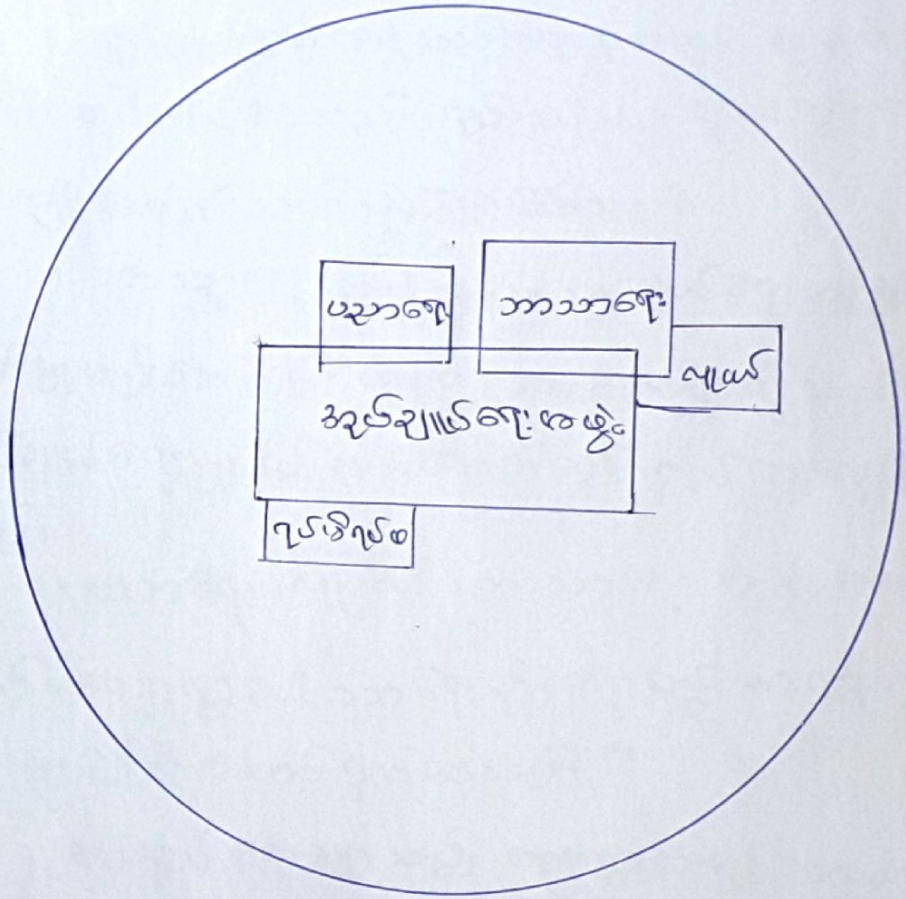 ပညာရေး
ဘာသာရေး
လူငယ်
အုပ်ချုပ်ရေးအဖွဲ့
ရပ်မိရပ်ဖ